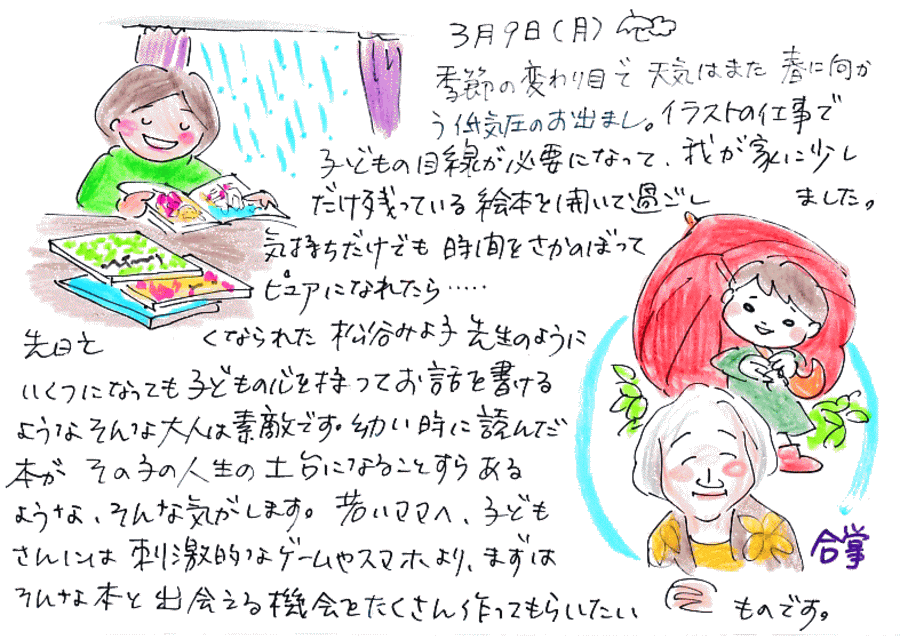 3月9日(月)
季節の変わり目で 天気はまた 春に向か
う低気圧のお出まし。イラストの仕事で
子どもの目線が必要になって、我が家に少し
だけ残っている絵本を開いて過ごし ました。
気持ちだけでも 時間をさかのぼって
ピュアになれたら……
先日亡くなられた 松谷みよ子先生のように
いくつになっても子どもの心を持ってお話を書ける
ようなそんな大人は素敵です。幼い時に読んだ
本が その子の人生の土台になることすらある
ような、そんな気がします。若いママへ、子ども
さんには 刺激的なゲームやスマホより、まずは
そんな本と出会える機会をたくさん作ってもらいたい ものです。
合掌